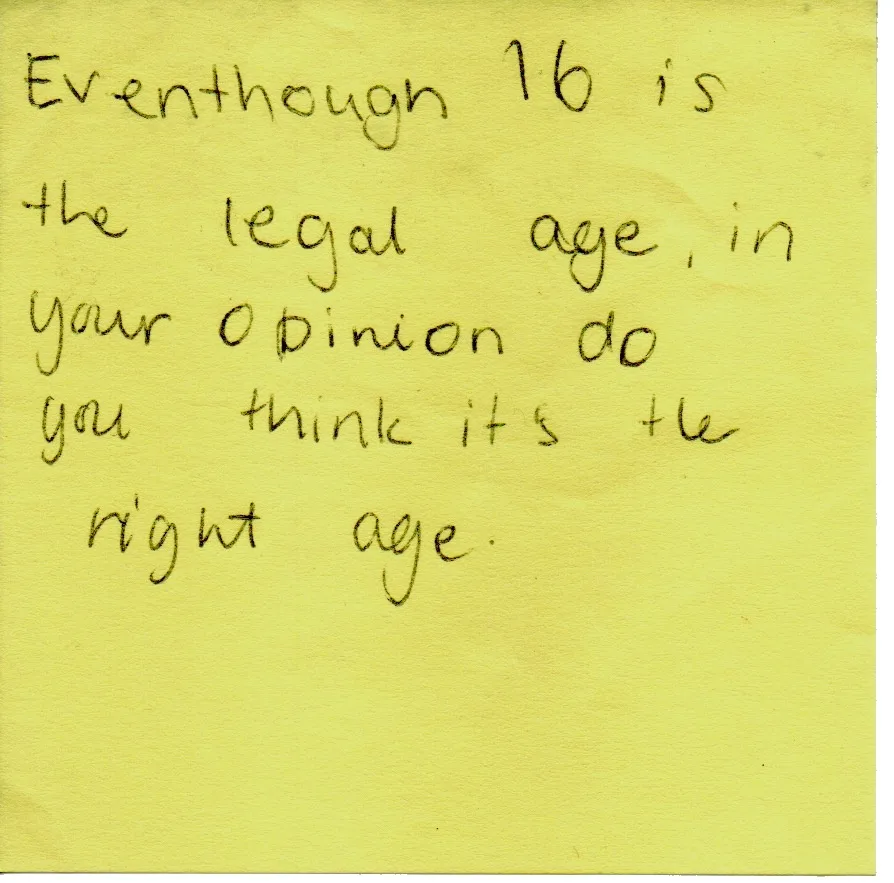 Eventhough 16 is
the legal age, in
your opinion do
you think it's the
right age.